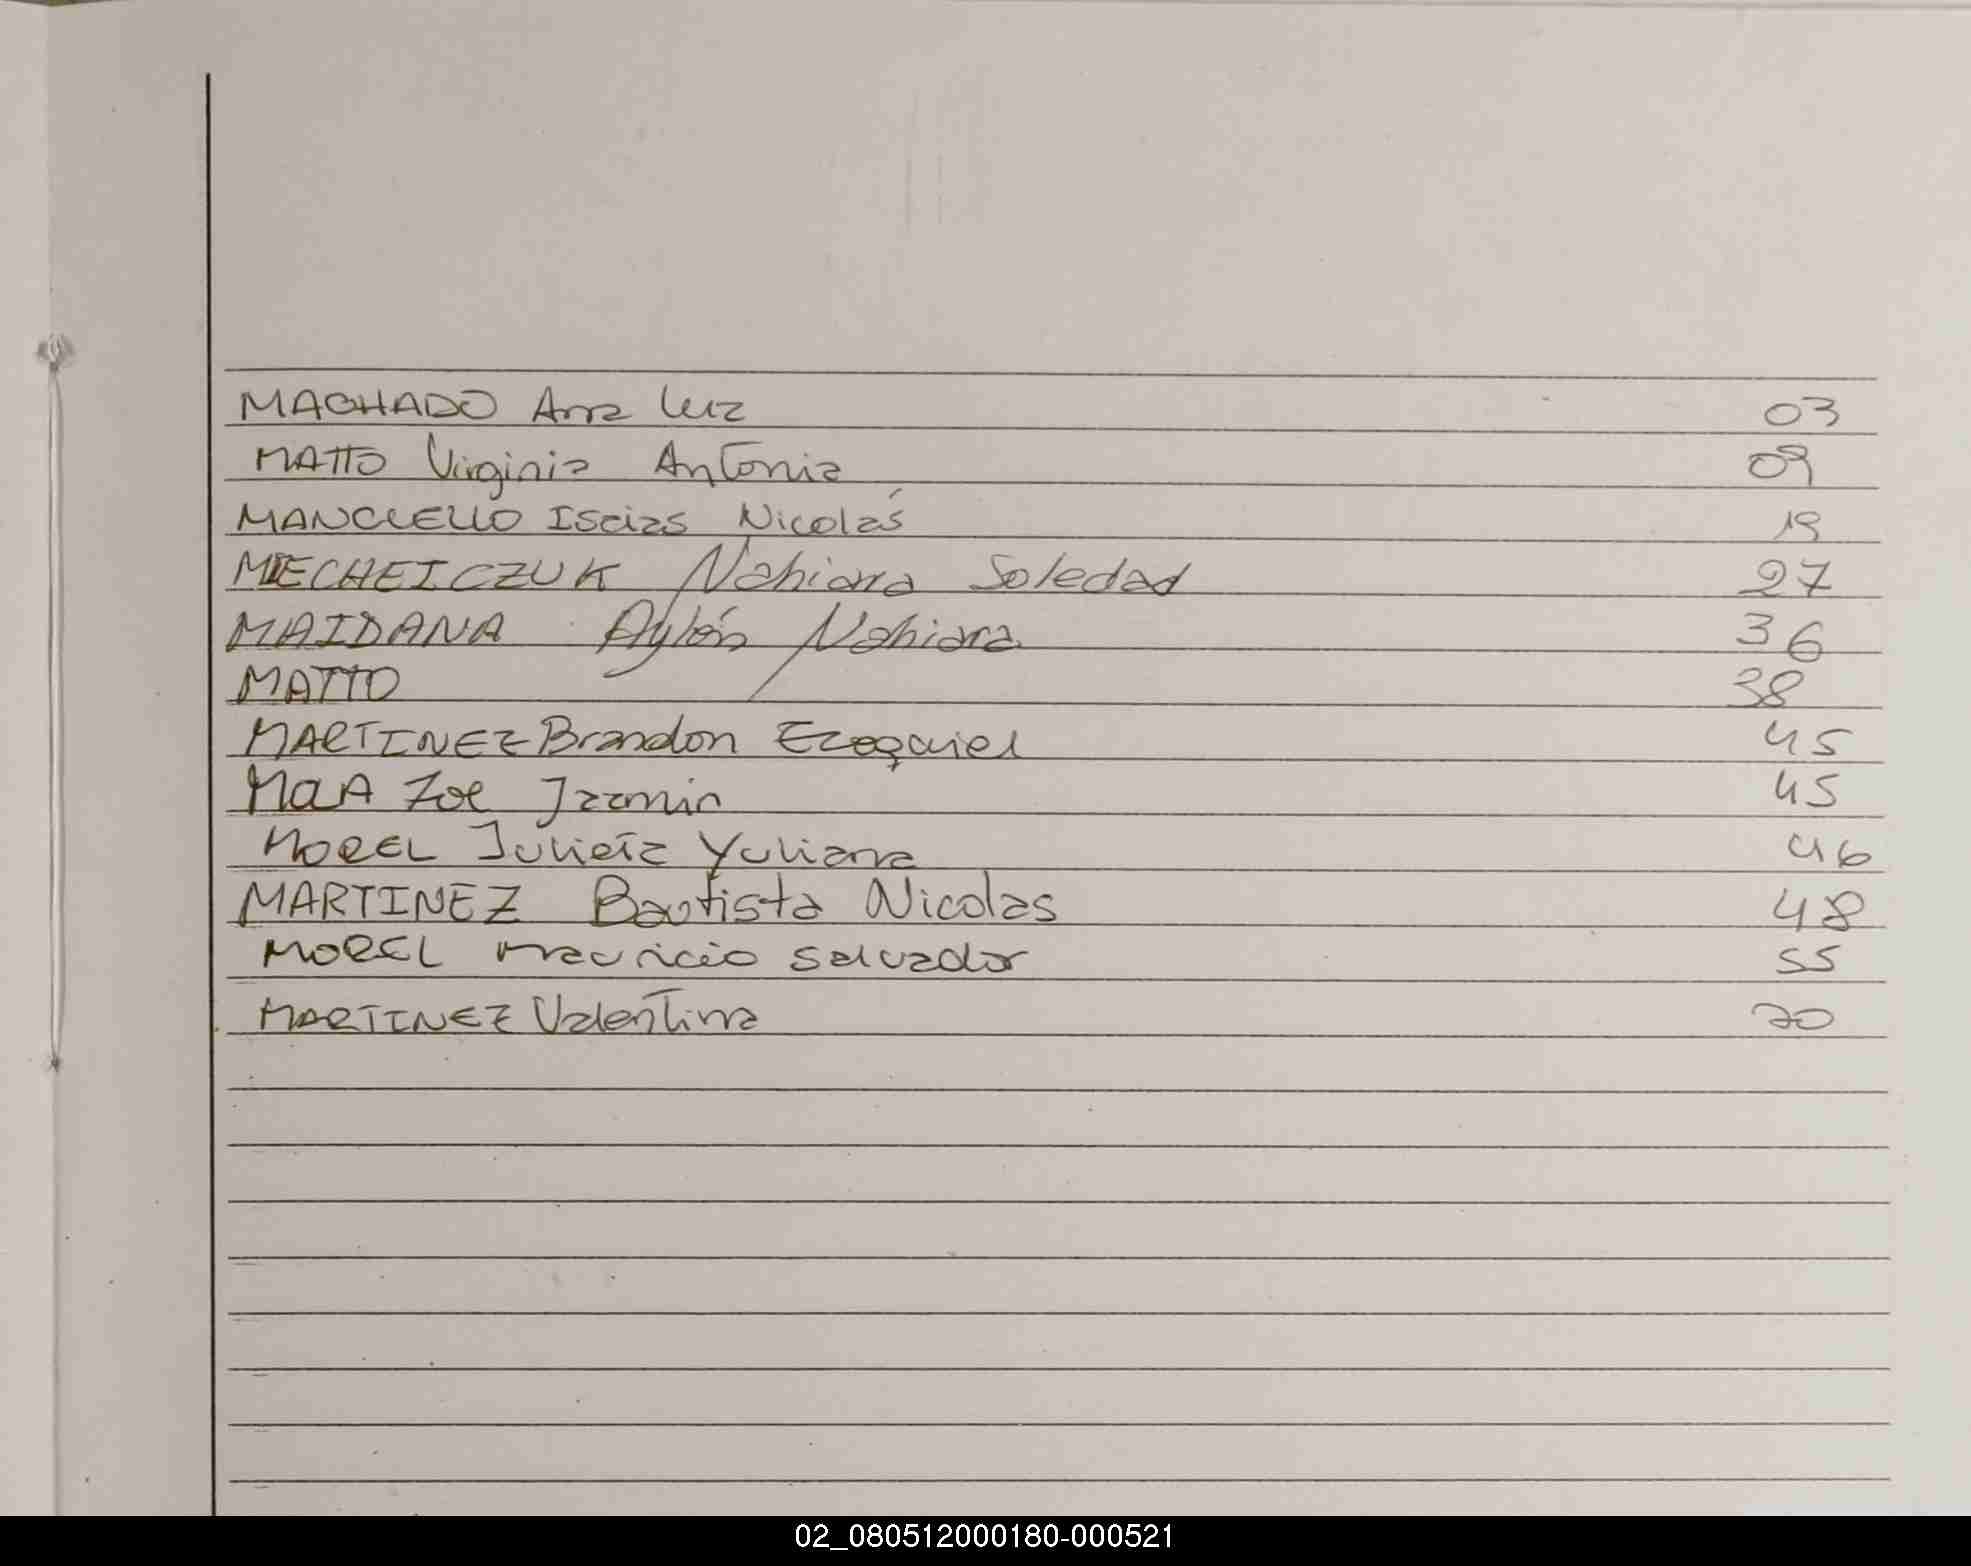 MACHADO Ana Luz 03
MATTO Virginia Antonia 09
MANCIELLO Isaias Nicolás 19
MIECHEICZUK Nahiara Soledad 27
MAIDANA Aylén Nahiara 36
MATTO 38
MARTINEZ Brandon Ezequiel 45
Zoe Jazmin 45
MOREL Julieta Yuliana 46
MARTINEZ Bautista Nicolas 48
MOREL Mauricio Salvador 55
MARTINEZ Valentina 70
02_080512000180-000521